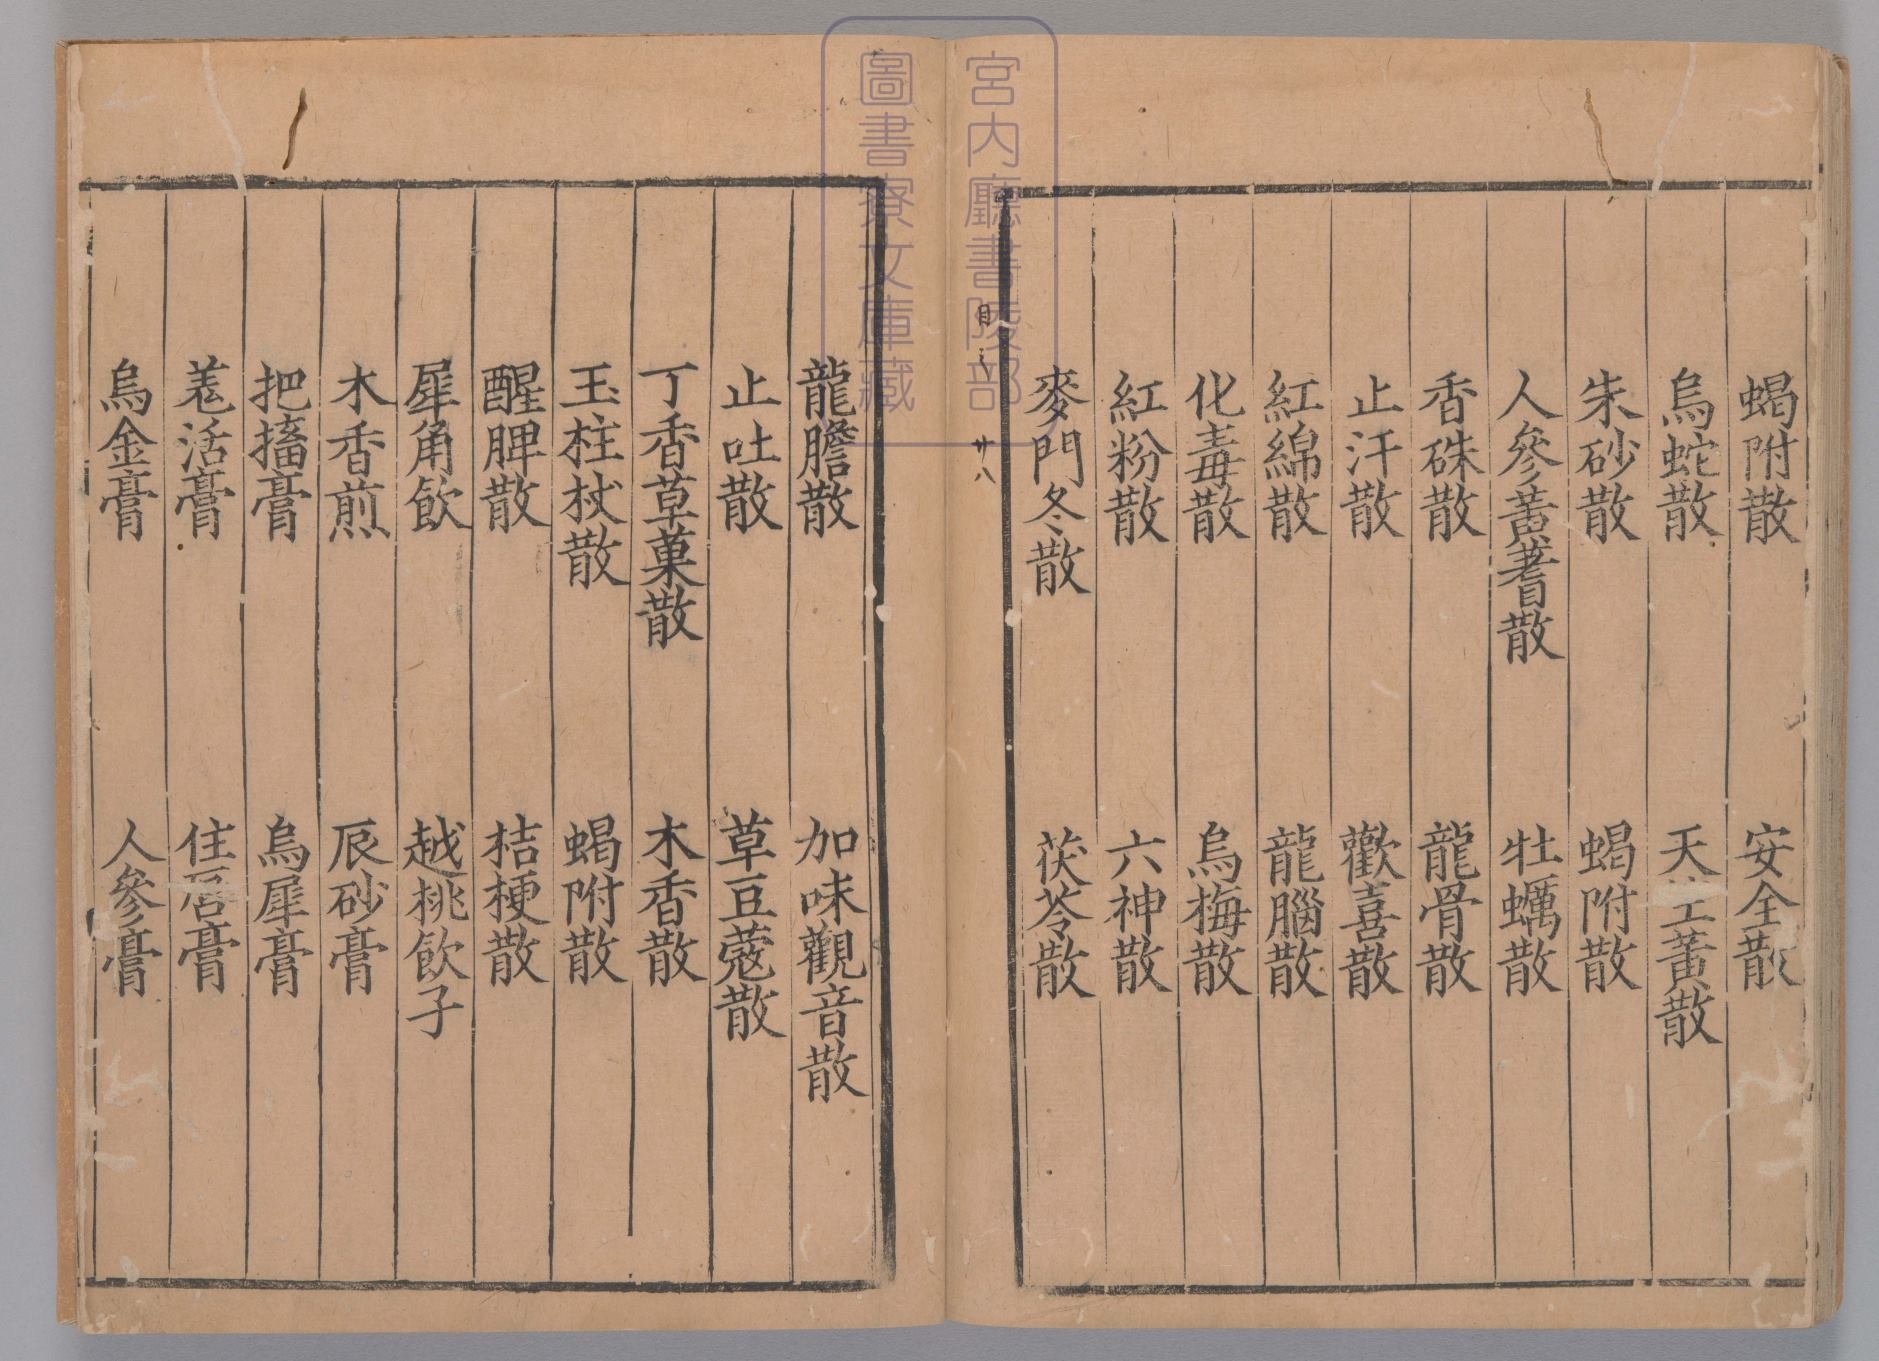 蝎附散　安全散
烏蛇散　天　黃散
朱砂散　蝎附散
人參黃蓍散　牡蠣散
香硃散　龍骨散
止汗散　歡喜散
紅綿散　龍腦散
化毒散　烏梅散
紅粉散　六神散
麥門冬散　茯苓散
目
廿八
龍膽散　加味觀音散
止吐散　草豆蔻散
丁香草菓散　木香散
玉柱杖散　蝎附散
醒脾散　桔梗散
犀角飲　越桃飲子
木香煎　辰砂膏
把搐膏　烏犀膏
羌活膏　住唇膏
烏金膏　人參膏
宮内廳書陵部
圖書寮文庫藏